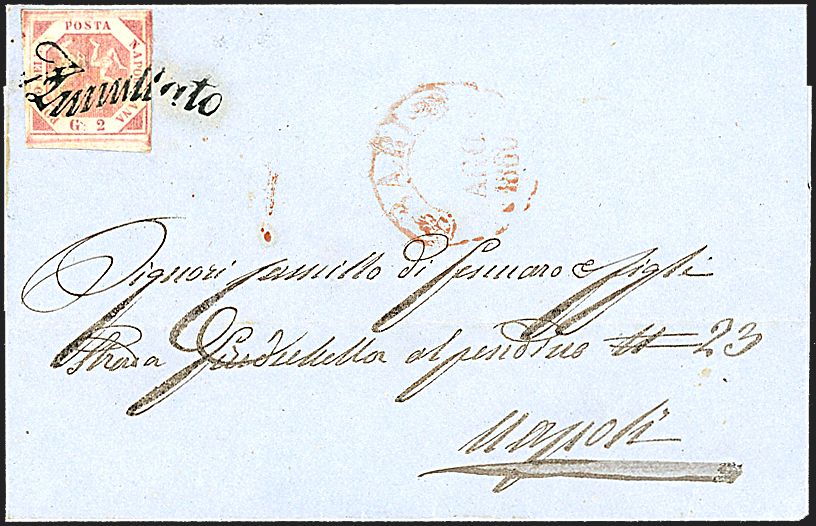 POSTA NAPOLETANA
G. 2
Annullato
BARI
AGO
1860
Signori Camillo di Gennaro e figli
Strada al pendino N 23
Napoli